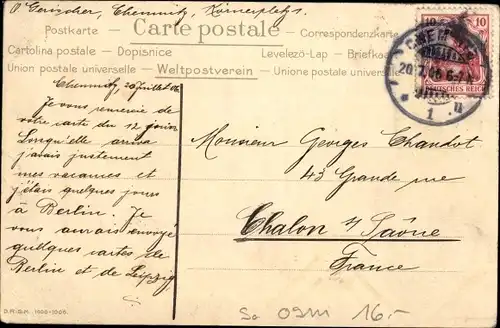 O Gerischer, Chemnitz, Körnerplatz.
Postkarte — Carte postale — Correspondenzkarte
Cartolina postale – Dopisnice Levelező-Lap – Briefkaart
Union postale universelle – Weltpostverein – Unione postale universale
10 10
DEUTSCHES REICH
CHEMNITZ
20.7.06 6-7 N
1 u
Chemnitz 20 juillet 06
Je vous remercie de
votre carte du 12 juin
Lorsqu'elle arriva
j'avais justement
mes vacances et
j'étais quelques jours
à Berlin. Je
vous aurais envoyé
quelques cartes de
Berlin et de Leipzig
Monsieur Georges Chandot
43 Grande rue
Chalon s/ Saône
France
D.R.G.M.
So 09M 16.-